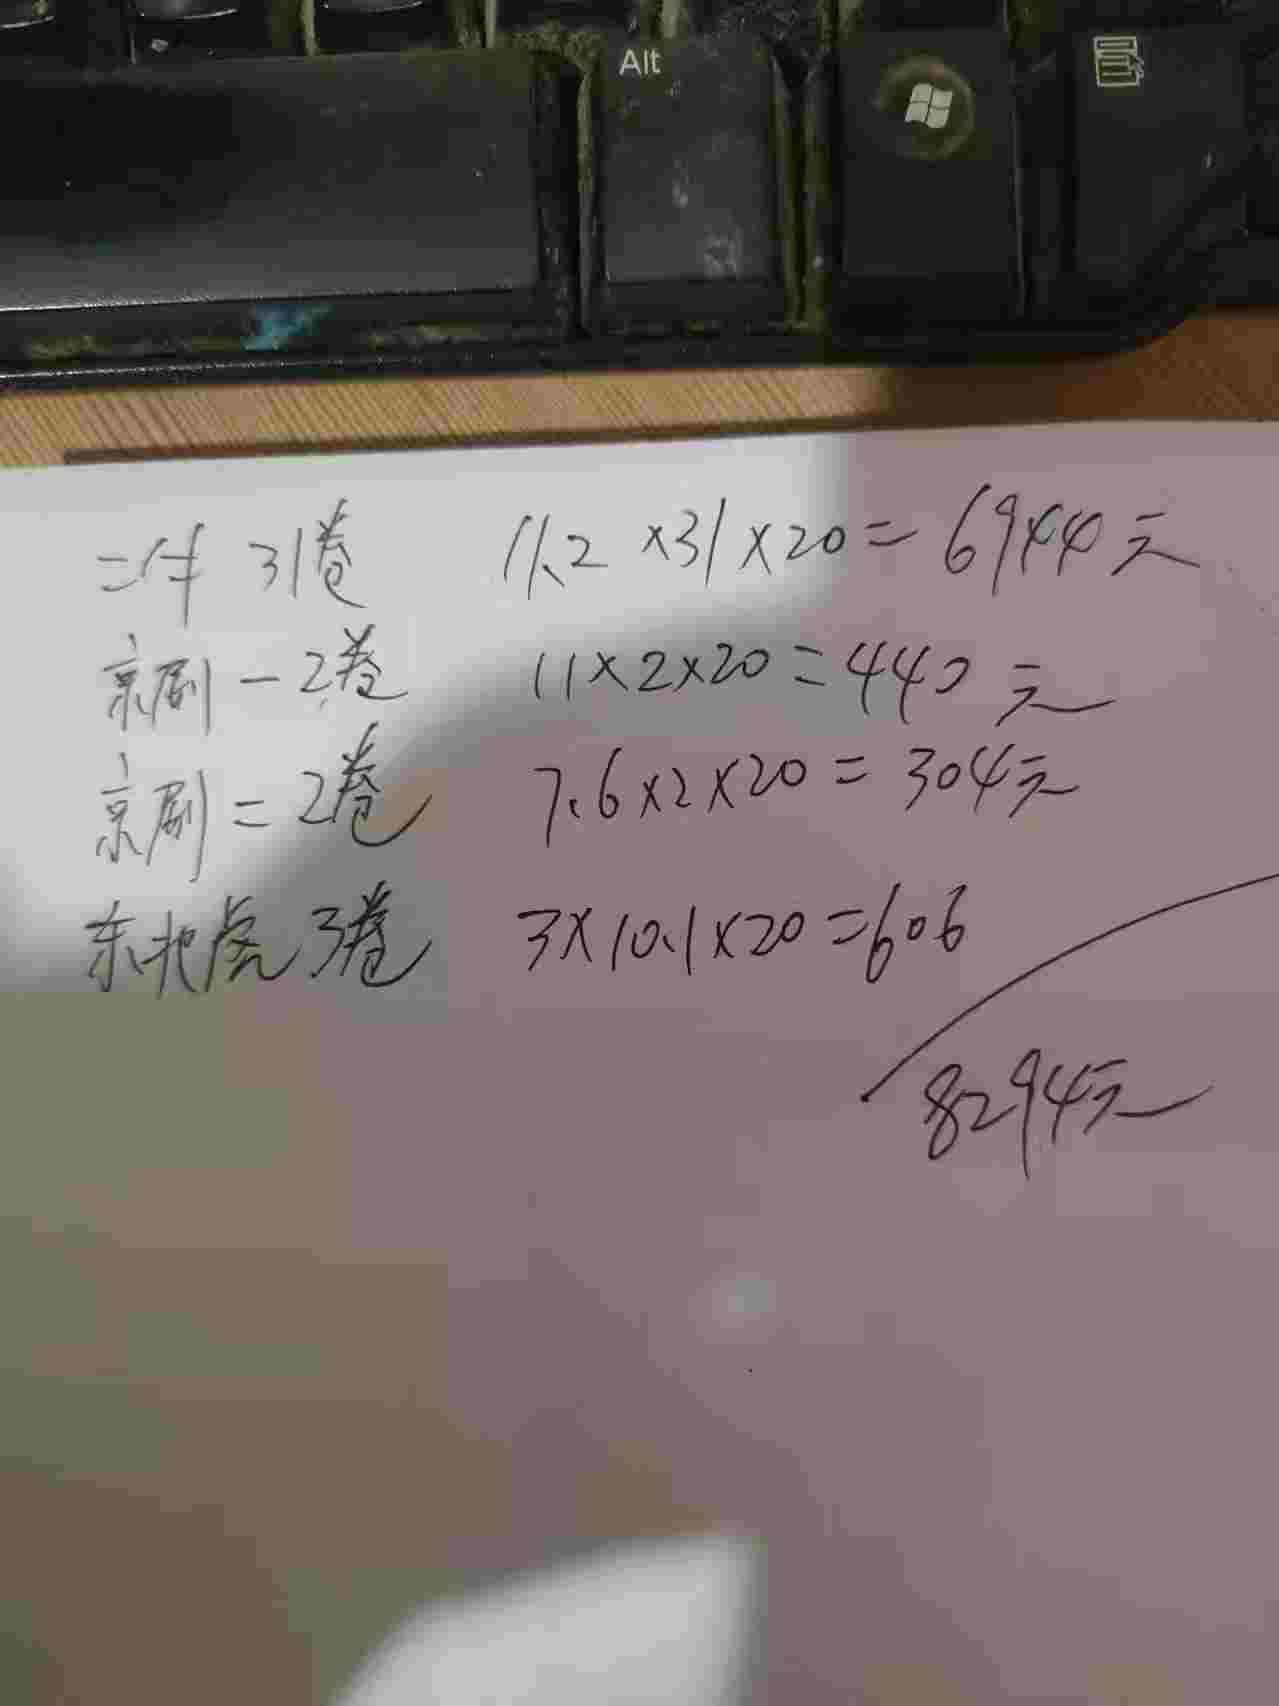 Alt
二牛 31卷 11.2 ×31×20=6944元
京剧一2卷 11×2×20=440元
京剧二2卷 7.6×2×20=304元
东北虎3卷 3×10.1×20=606
8294元